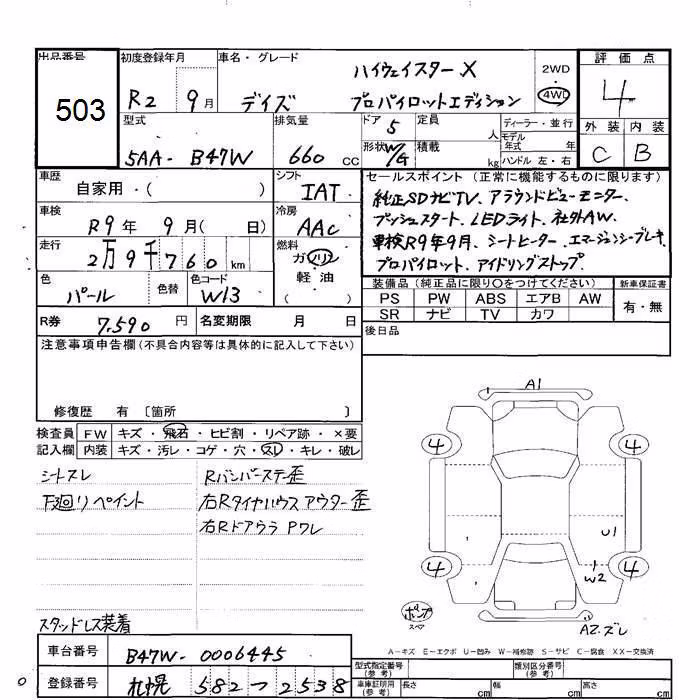 出品番号
503
初度登録年月
R2 9月
車名・グレード
デイズ
ハイウェイスターX
プロパイロットエディション
2WD
4WD
評価点
4
外装 内装
C B
型式
5AA-B47W
排気量
660 cc
ドア 5
定員 人
形状 W/G
積載 kg
ディーラー・並行
モデル年式 年
ハンドル 左・右
車歴
自家用・( )
シフト
IAT
車検
R9年 9月( 日)
冷房
AAC
走行
2万9千760 km
燃料
ガソリン
軽油
・( )
色
パール
色替
色コード
W13
R券 7,590 円
名変期限 月 日
セールスポイント(正常に機能するものに限ります)
純正SDナビTV、アラウンドビューモニター、
プッシュスタート、LEDライト、社外AW、
車検R9年9月、シートヒーター、エマージェンシーブレーキ
プロパイロット、アイドリングストップ、
装備品(純正品に限り○をつけてください)
新車保証書
PS PW ABS エアB AW
SR ナビ TV カワ
有・無
後日品
注意事項申告欄(不具合内容等は具体的に記入して下さい)
修復歴 有 〔箇所 〕
検査員記入欄
FW キズ・飛石・ヒビ割・リペア跡・×要
内装 キズ・汚レ・コゲ・穴・スレ・キレ・破レ
シートスレ
下廻りペイント
Rバンパーステー歪
右Rタイヤハウスアウター歪
右RドアウラPワレ
スタッドレス装着
A1
4
4
4
4
U1
W2
AZ.ズレ
ポンプ
スペア
A－キズ E－エクボ U－凹み W－補修跡 S－サビ C－腐食 XX－交換済
車台番号
B47W-0006445
登録番号
札幌 582 つ 2538
型式指定番号(参考)
類別区分番号(参考)
車庫証明用(参考)
長さ cm
幅 cm
高さ cm